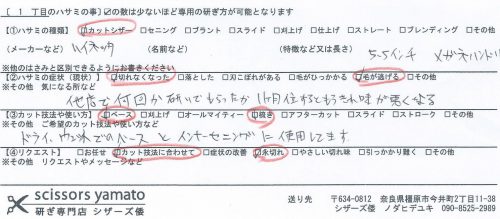 [ 1 丁目のハサミの事] ☑の数は少ないほど専用の研ぎ方が可能となります
【①ハサミの種類】 □カットシザー □セニング □ブラント □スライド □刈上げ □仕上げ □ストレート □ブレンディング □その他
(メーカーなど) ハイネッタ (名前など) (特徴など又は長さ) 5-5インチ メガネハンドル
※他のはさみと区別できるようにお書きください
【②ハサミの症状（現状）】 □切れなくなった □落とした □刃こぼれがある □毛がひっかかる □毛が逃げる □その他
※その他 気になる所など
他店で何回か研いでもらったが 1ヶ月位するともう切れ味が悪くなる
【③カット技法や使い方】 □ベース □刈上げ □オールマイティー □梳き □アフターカット □スライド □ストローク □その他
※その他 ご希望のカット技法や使い方など
ドライ、ウェットでのベース と インナーセニングに使用してます
【④リクエスト】 □お任せ □カット技法に合わせて □症状の改善 □永切れ □やさしい切れ味 □引っかかり難く □その他
※その他 リクエストやメッセージなど
scissors yamato
研ぎ専門店 シザーズ倭
送り先 〒634-0812 奈良県橿原市今井町2丁目11-38
シザーズ倭 ノダヒデユキ 090-8525-2989